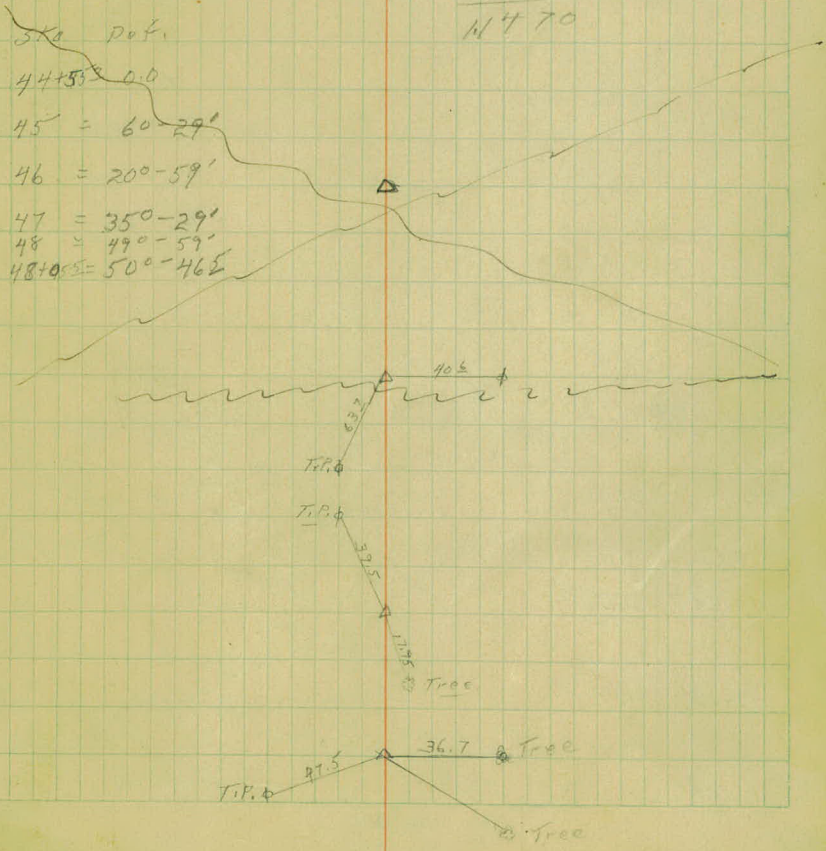 N 470
Sta Def.
44+55³ 0.0
45 = 6°-29'
46 = 20°-59'
47 = 35°-29'
48 = 49°-59'
48+05⁵ = 50°-46⁵
40⁶
63²
T.P.
T.P.
39.5
17.95
Tree
36.7 Tree
47.5
T.P.
Tree